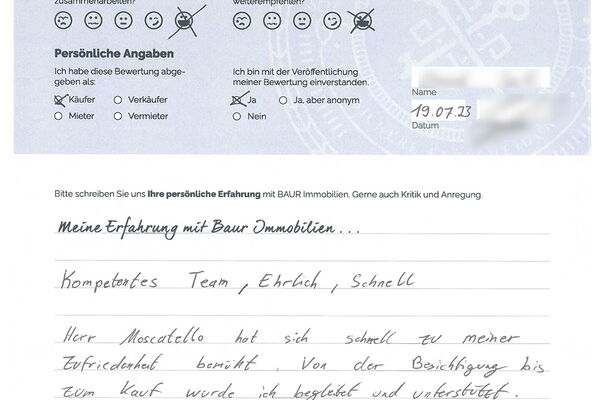 zusammenarbeiten?
weiterempfehlen?
Persönliche Angaben
Ich habe diese Bewertung abge-
geben als:
Käufer Verkäufer
Mieter Vermieter
Ich bin mit der Veröffentlichung
meiner Bewertung einverstanden.
Ja Ja, aber anonym
Nein
Name
19.07.23
Datum
Bitte schreiben Sie uns Ihre persönliche Erfahrung mit BAUR Immobilien. Gerne auch Kritik und Anregung.
Meine Erfahrung mit Baur Immobilien...
Kompetentes Team, Ehrlich, Schnell
Herr Moscatello hat sich schnell zu meiner
Zufriedenheit bemüht. Von der Besichtigung bis
zum Kauf wurde ich begleitet und unterstützt.